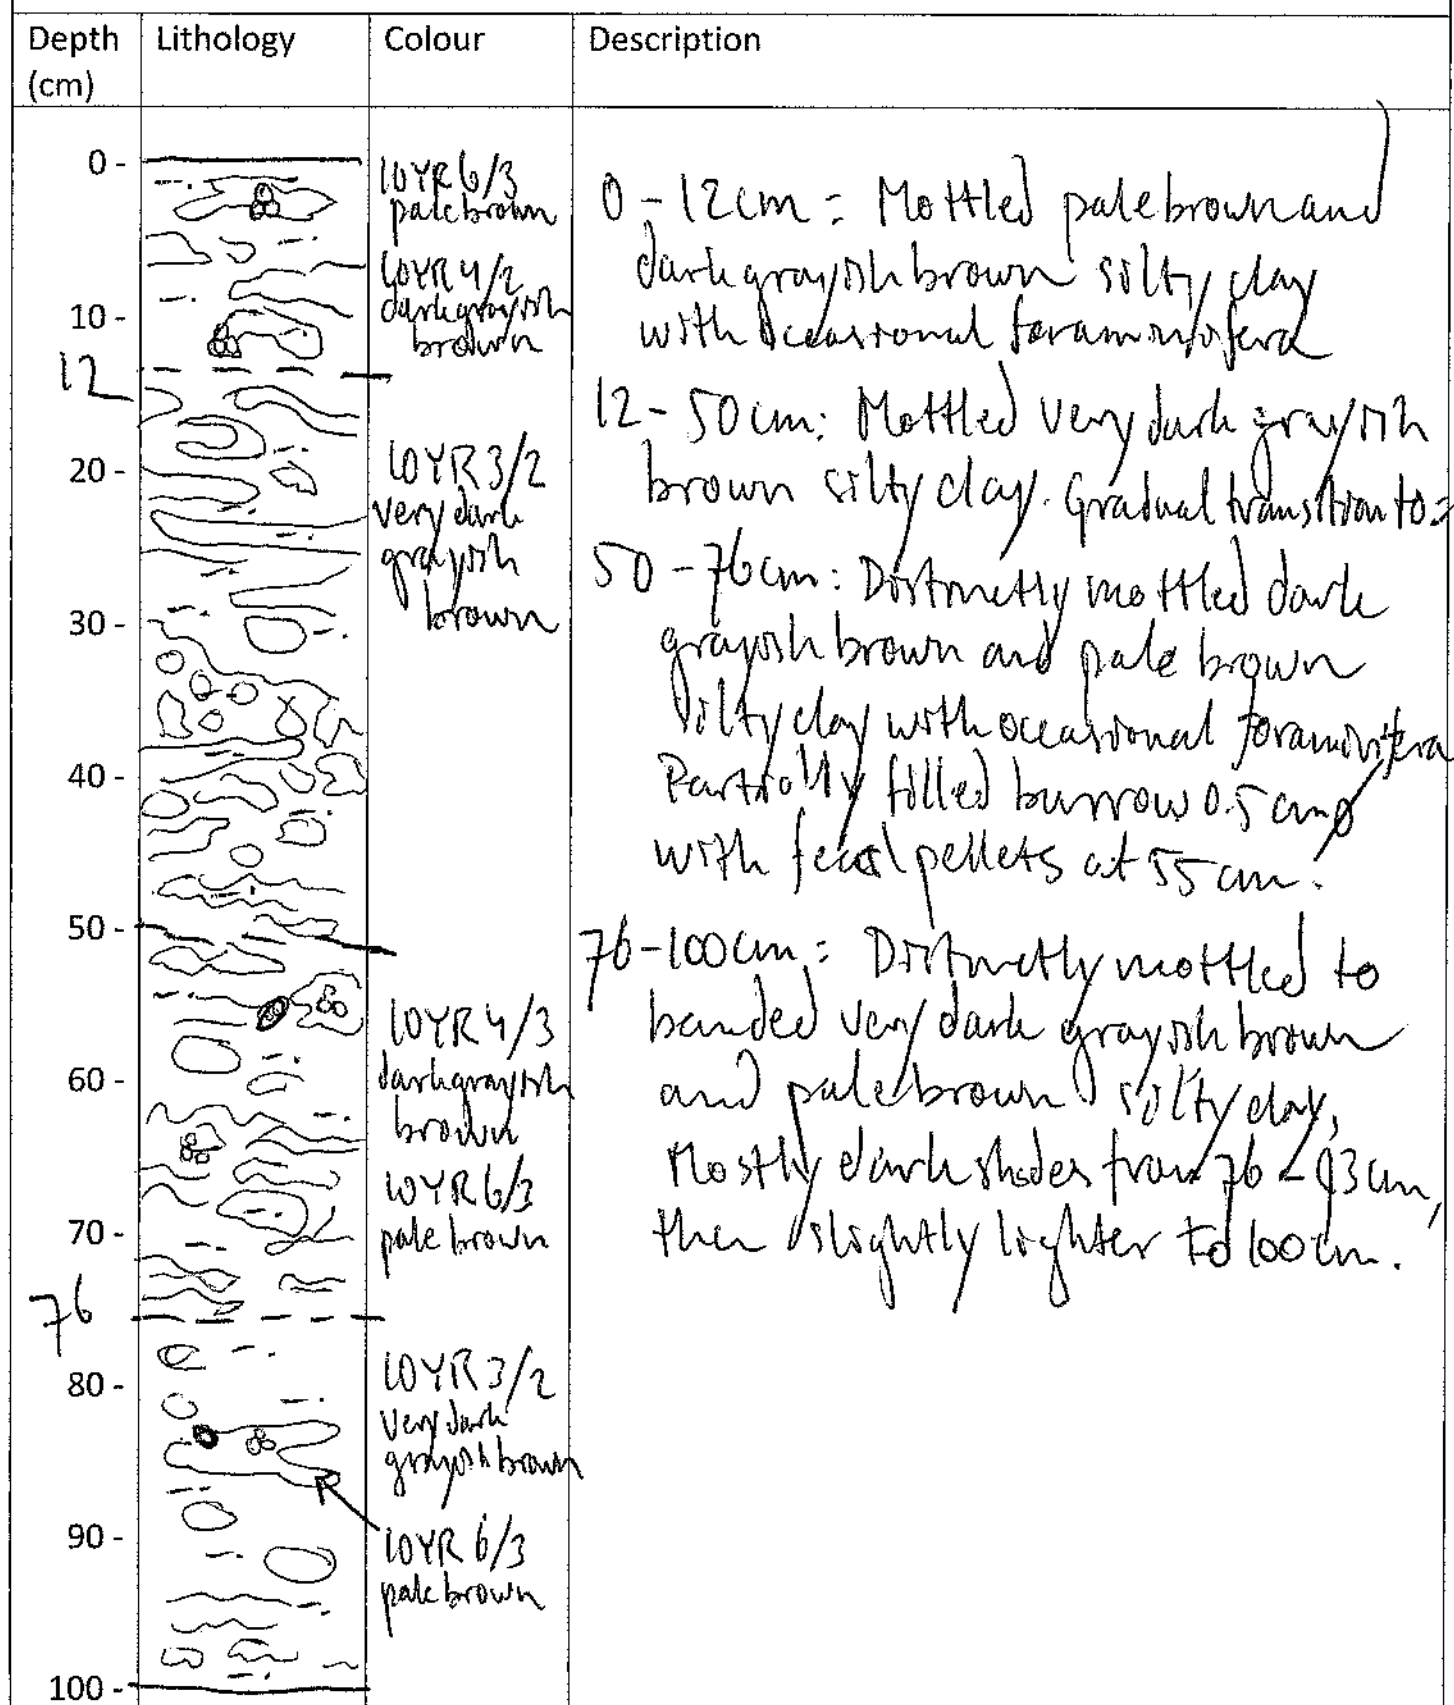 Depth Lithology Colour Description
(cm)
0 -
10 -
12
20 -
30 -
40 -
50 -
60 -
70 -
76
80 -
90 -
100 -
10YR 6/3
pale brown
10YR 4/2
dark grayish
brown
10YR 3/2
very dark
grayish
brown
10YR 4/3
dark grayish
brown
10YR 6/3
pale brown
10YR 3/2
very dark
grayish brown
10YR 6/3
pale brown
0 - 12cm: Mottled pale brown and
dark grayish brown silty clay
with occasional foraminifera
12 - 50cm: Mottled very dark grayish
brown silty clay. Gradual transition to:
50 - 76cm: Distinctly mottled dark
grayish brown and pale brown
silty clay with occasional foraminifera
Partially filled burrow 0.5 cm ø
with fecal pellets at 55 cm.
76-100cm: Distinctly mottled to
banded very dark grayish brown
and pale brown silty clay,
Mostly dark shades from 76 - 93 cm,
then slightly lighter to 100 cm.